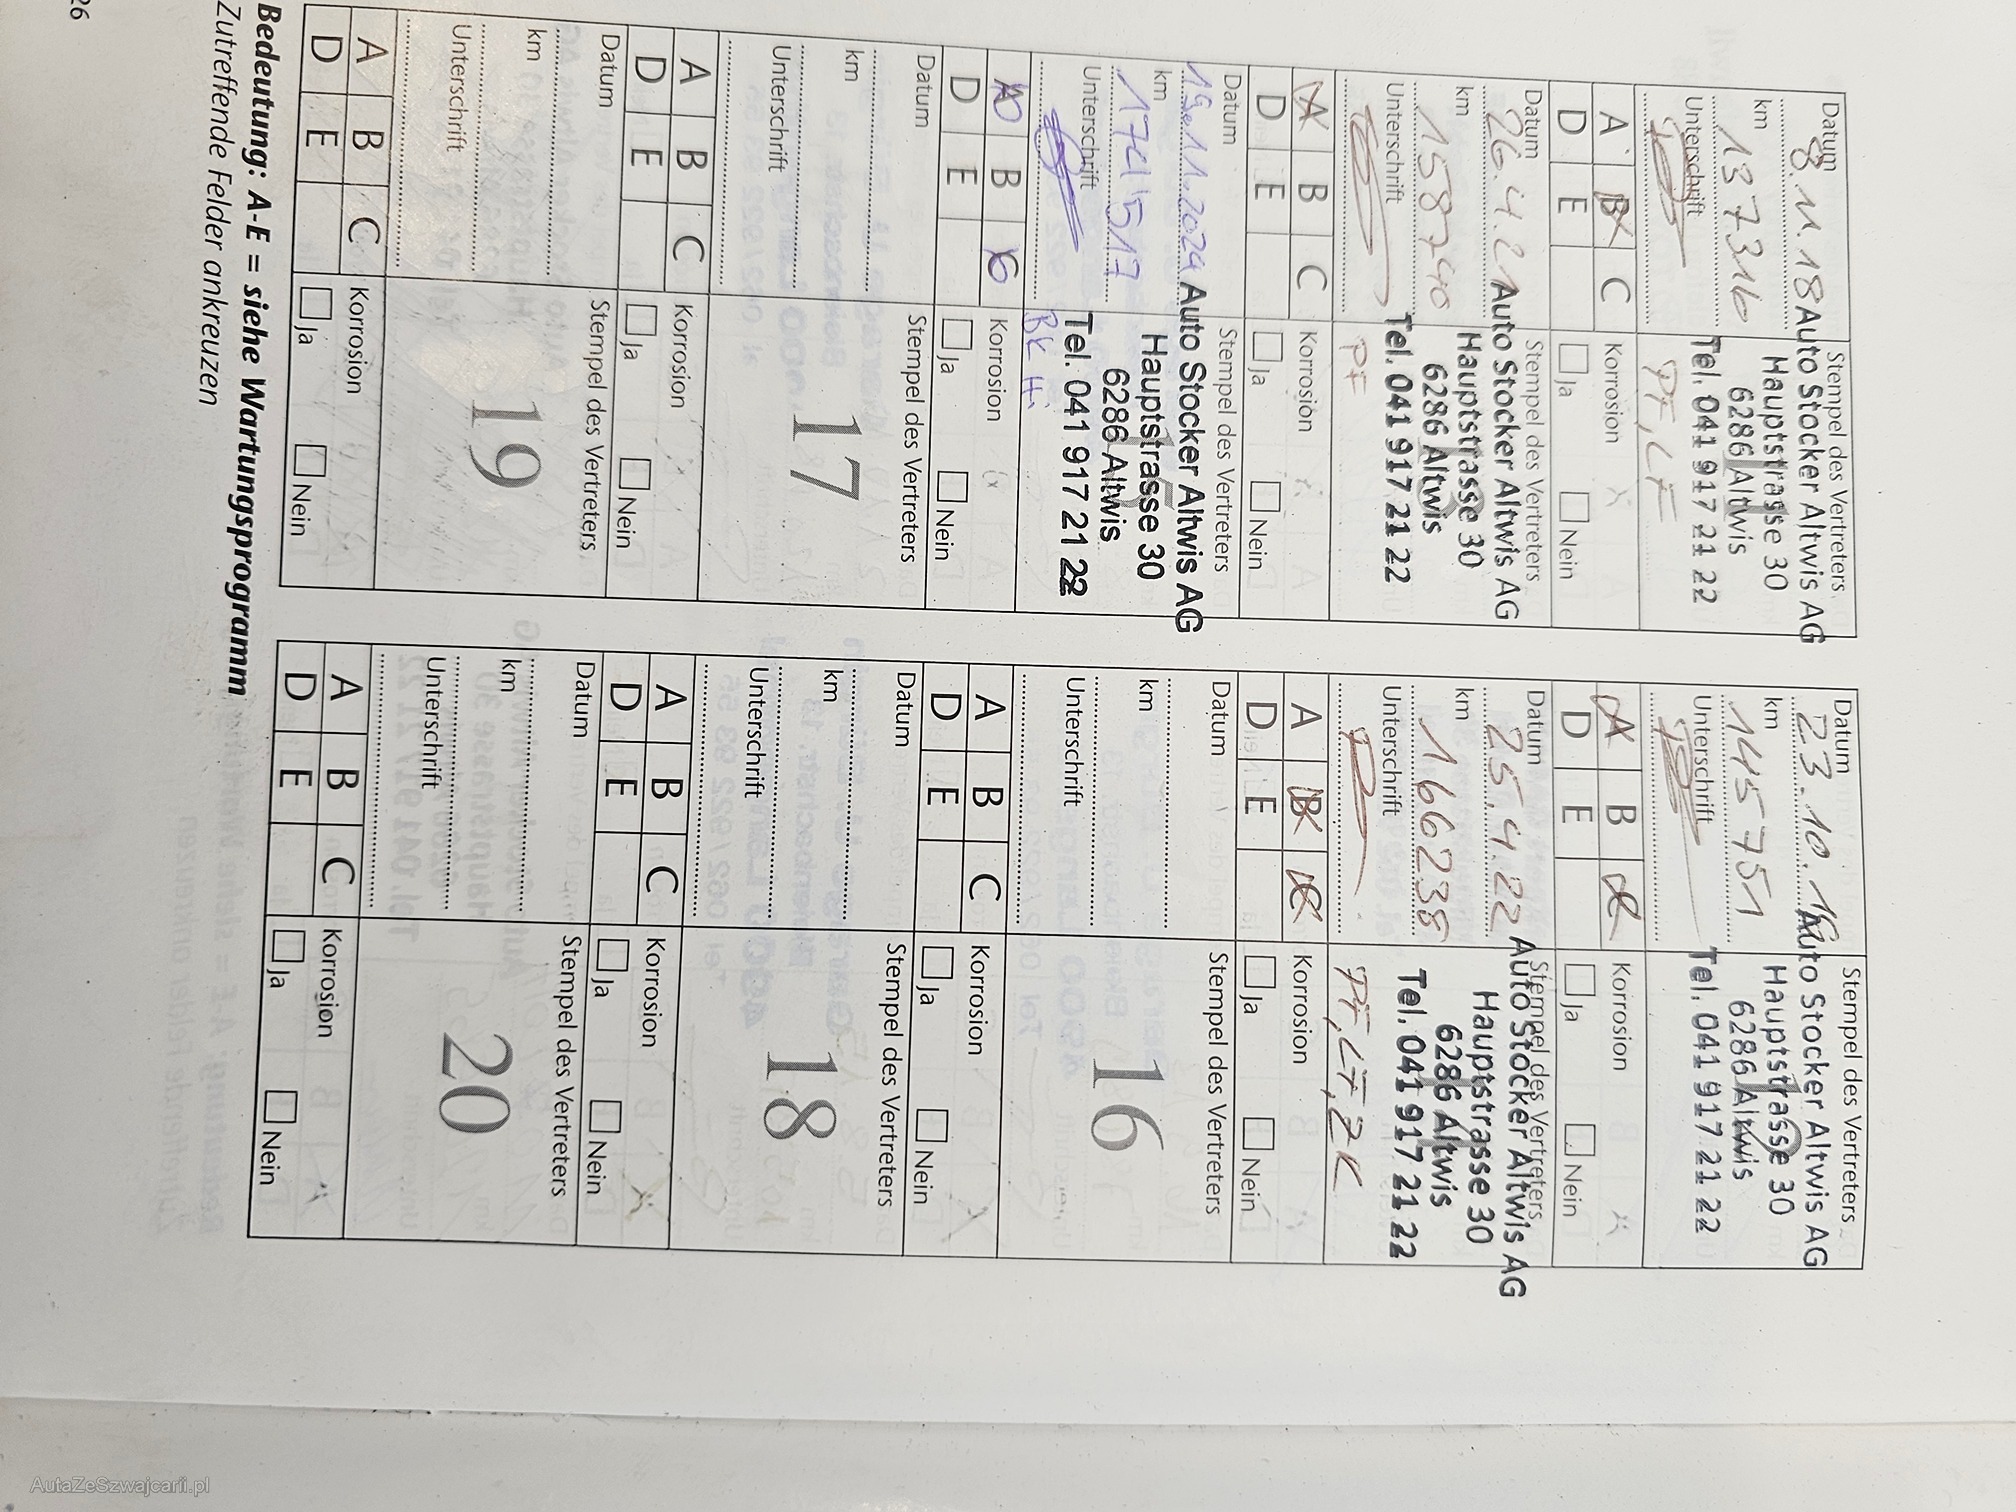 Datum 8.11.18
km 137316
Unterschrift
Stempel des Vertreters
Auto Stocker Altwis AG
Hauptstrasse 30
6286 Altwis
Tel. 041 917 21 22
PF, LF
A B C
D E
Korrosion
Ja Nein
Datum 23.10.
km 145751
Unterschrift
Stempel des Vertreters
Auto Stocker Altwis AG
Hauptstrasse 30
6286 Altwis
Tel. 041 917 21 22
A B C
D E
Korrosion
Ja Nein
Datum 26.4.21
km 158740
Unterschrift
Stempel des Vertreters
Auto Stocker Altwis AG
Hauptstrasse 30
6286 Altwis
Tel. 041 917 21 22
PF
A B C
D E
Korrosion
Ja Nein
Datum 25.4.22
km 166238
Unterschrift
Stempel des Vertreters
Auto Stocker Altwis AG
Hauptstrasse 30
6286 Altwis
Tel. 041 917 21 22
PF, LF, ZK
A B C
D E
Korrosion
Ja Nein
Datum 19.11.2024
km
Unterschrift
Stempel des Vertreters
Auto Stocker Altwis AG
Hauptstrasse 30
6286 Altwis
Tel. 041 917 21 22
BK Hi
A B C
D E
Korrosion
Ja Nein
Datum
km
Unterschrift
Stempel des Vertreters
16
A B C
D E
Korrosion
Ja Nein
Datum
km
Unterschrift
Stempel des Vertreters
17
A B C
D E
Korrosion
Ja Nein
Datum
km
Unterschrift
Stempel des Vertreters
18
A B C
D E
Korrosion
Ja Nein
Datum
km
Unterschrift
Stempel des Vertreters
19
A B C
D E
Korrosion
Ja Nein
Datum
km
Unterschrift
Stempel des Vertreters
20
A B C
D E
Korrosion
Ja Nein
Bedeutung: A-E = siehe Wartungsprogramm
Zutreffende Felder ankreuzen
26
AutaZeSzwajcarii.pl